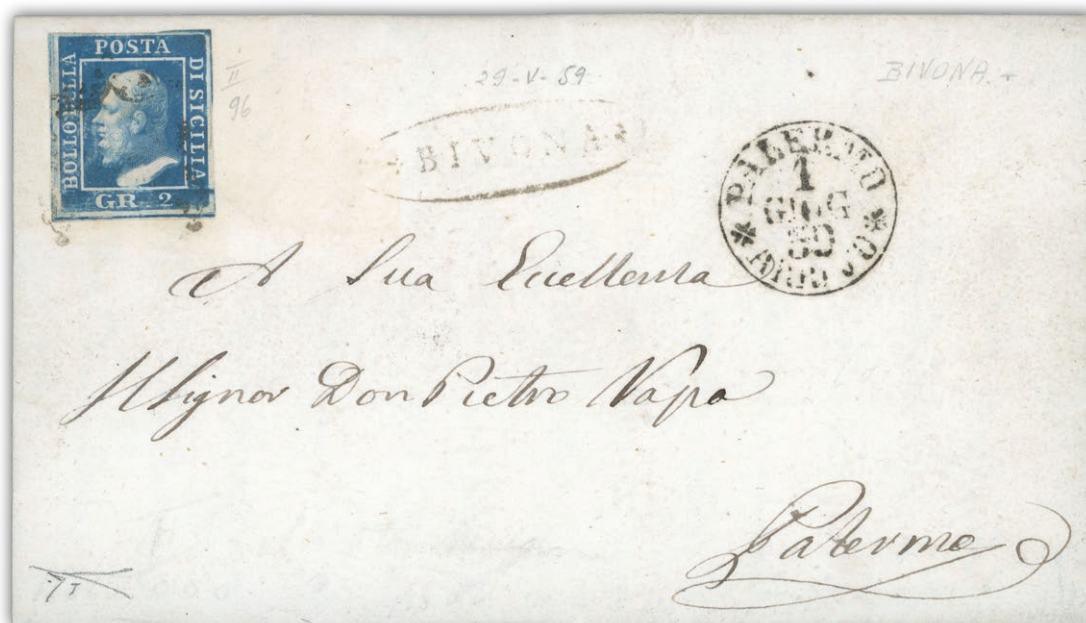 POSTA
BOLLO DELLA
DI SICILIA
GR. 2
II
96
29-V-59
BIVONA
BIVONA
PALERMO
1
GIUG
ARRIVO
A Sua Eccellenza
Il Signor Don Pietro Papa
Palermo